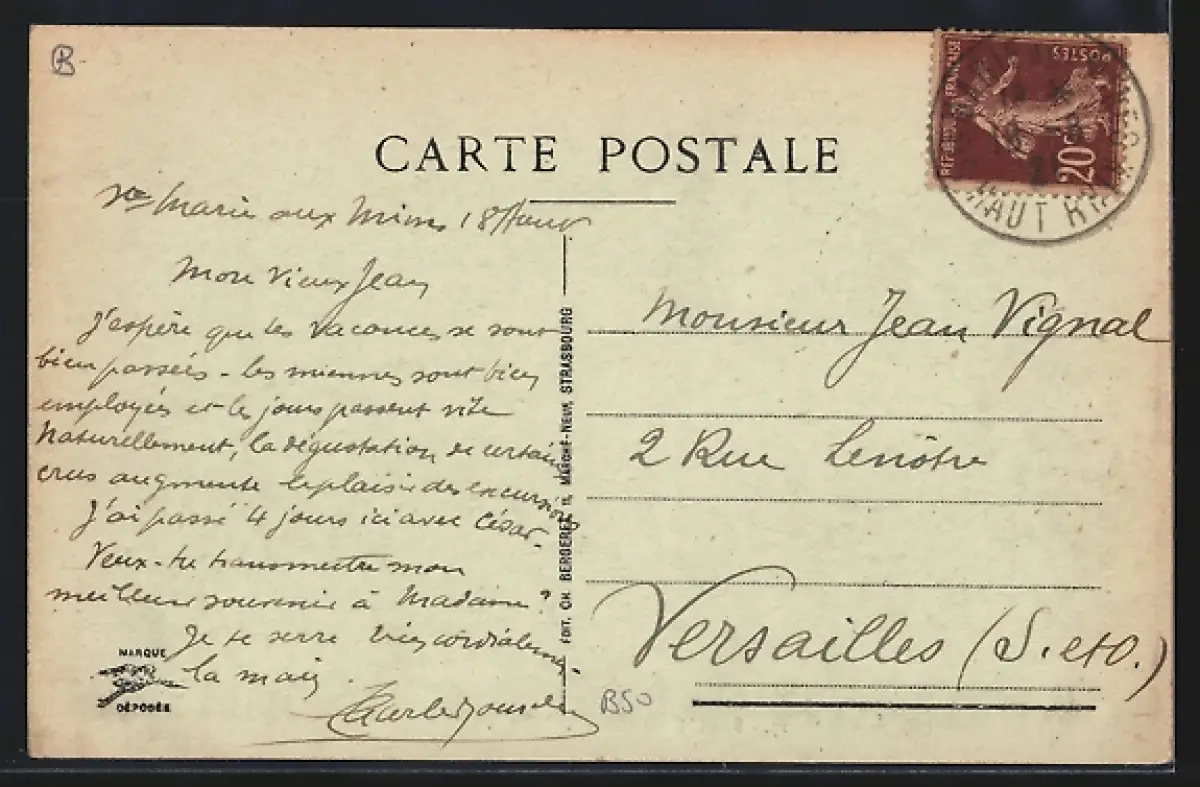 B
CARTE POSTALE
RÉPUBLIQUE FRANÇAISE
POSTES
20c
HAUT RHIN
Ste Marie aux Mines 18 Aout
Mon vieux Jean
J'espère que tes vacances se sont
bien passées - les miennes sont bien
employées et les jours passent vite
Naturellement, la dégustation de certains
crus augmente le plaisir des excursions
J'ai passé 4 jours ici avec César.
Veux-tu transmettre mon
meilleur souvenir à Madame ?
Je te serre bien cordialement
la main
Monsieur Jean Vignal
2 Rue Lenôtre
Versailles (S. et O.)
EDIT. CH. BERGERET, 11, MARCHÉ-NEUF, STRASBOURG
MARQUE
DÉPOSÉE
B50